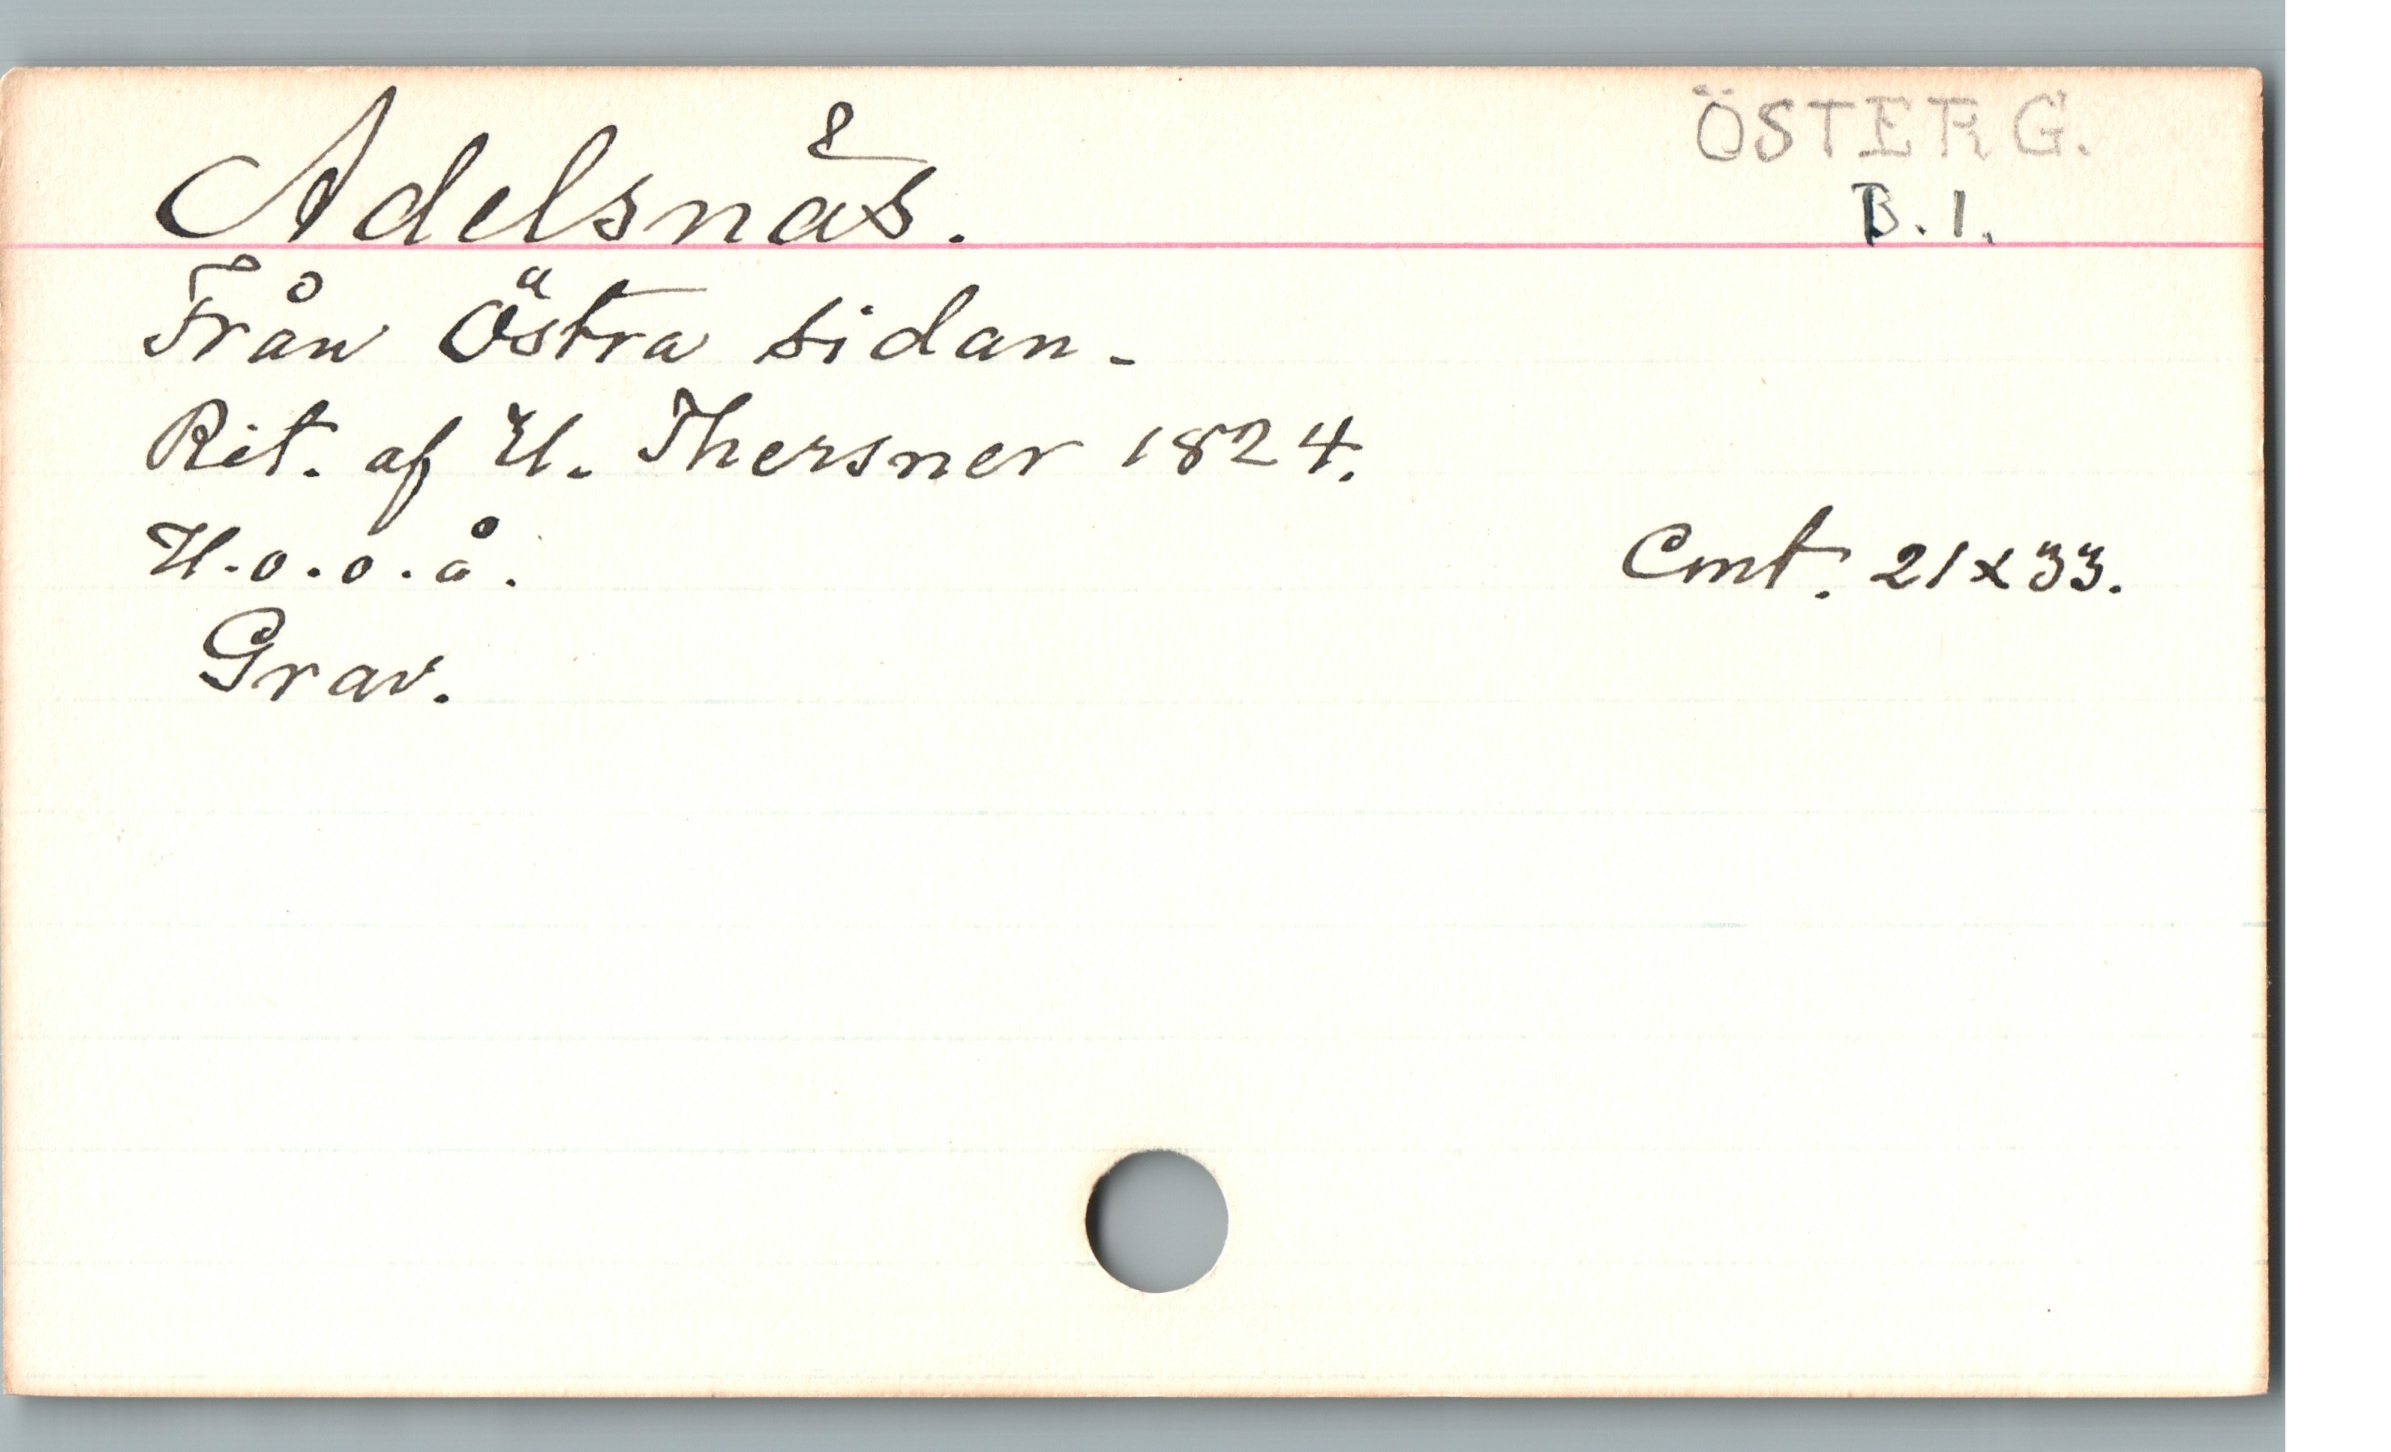 Adelsnäs.
ÖSTERG.
B. 1.
Från Östra sidan.
Rit. af U. Thersner 1824.
U.o.o.å.
Cmt. 21x33.
Grav.